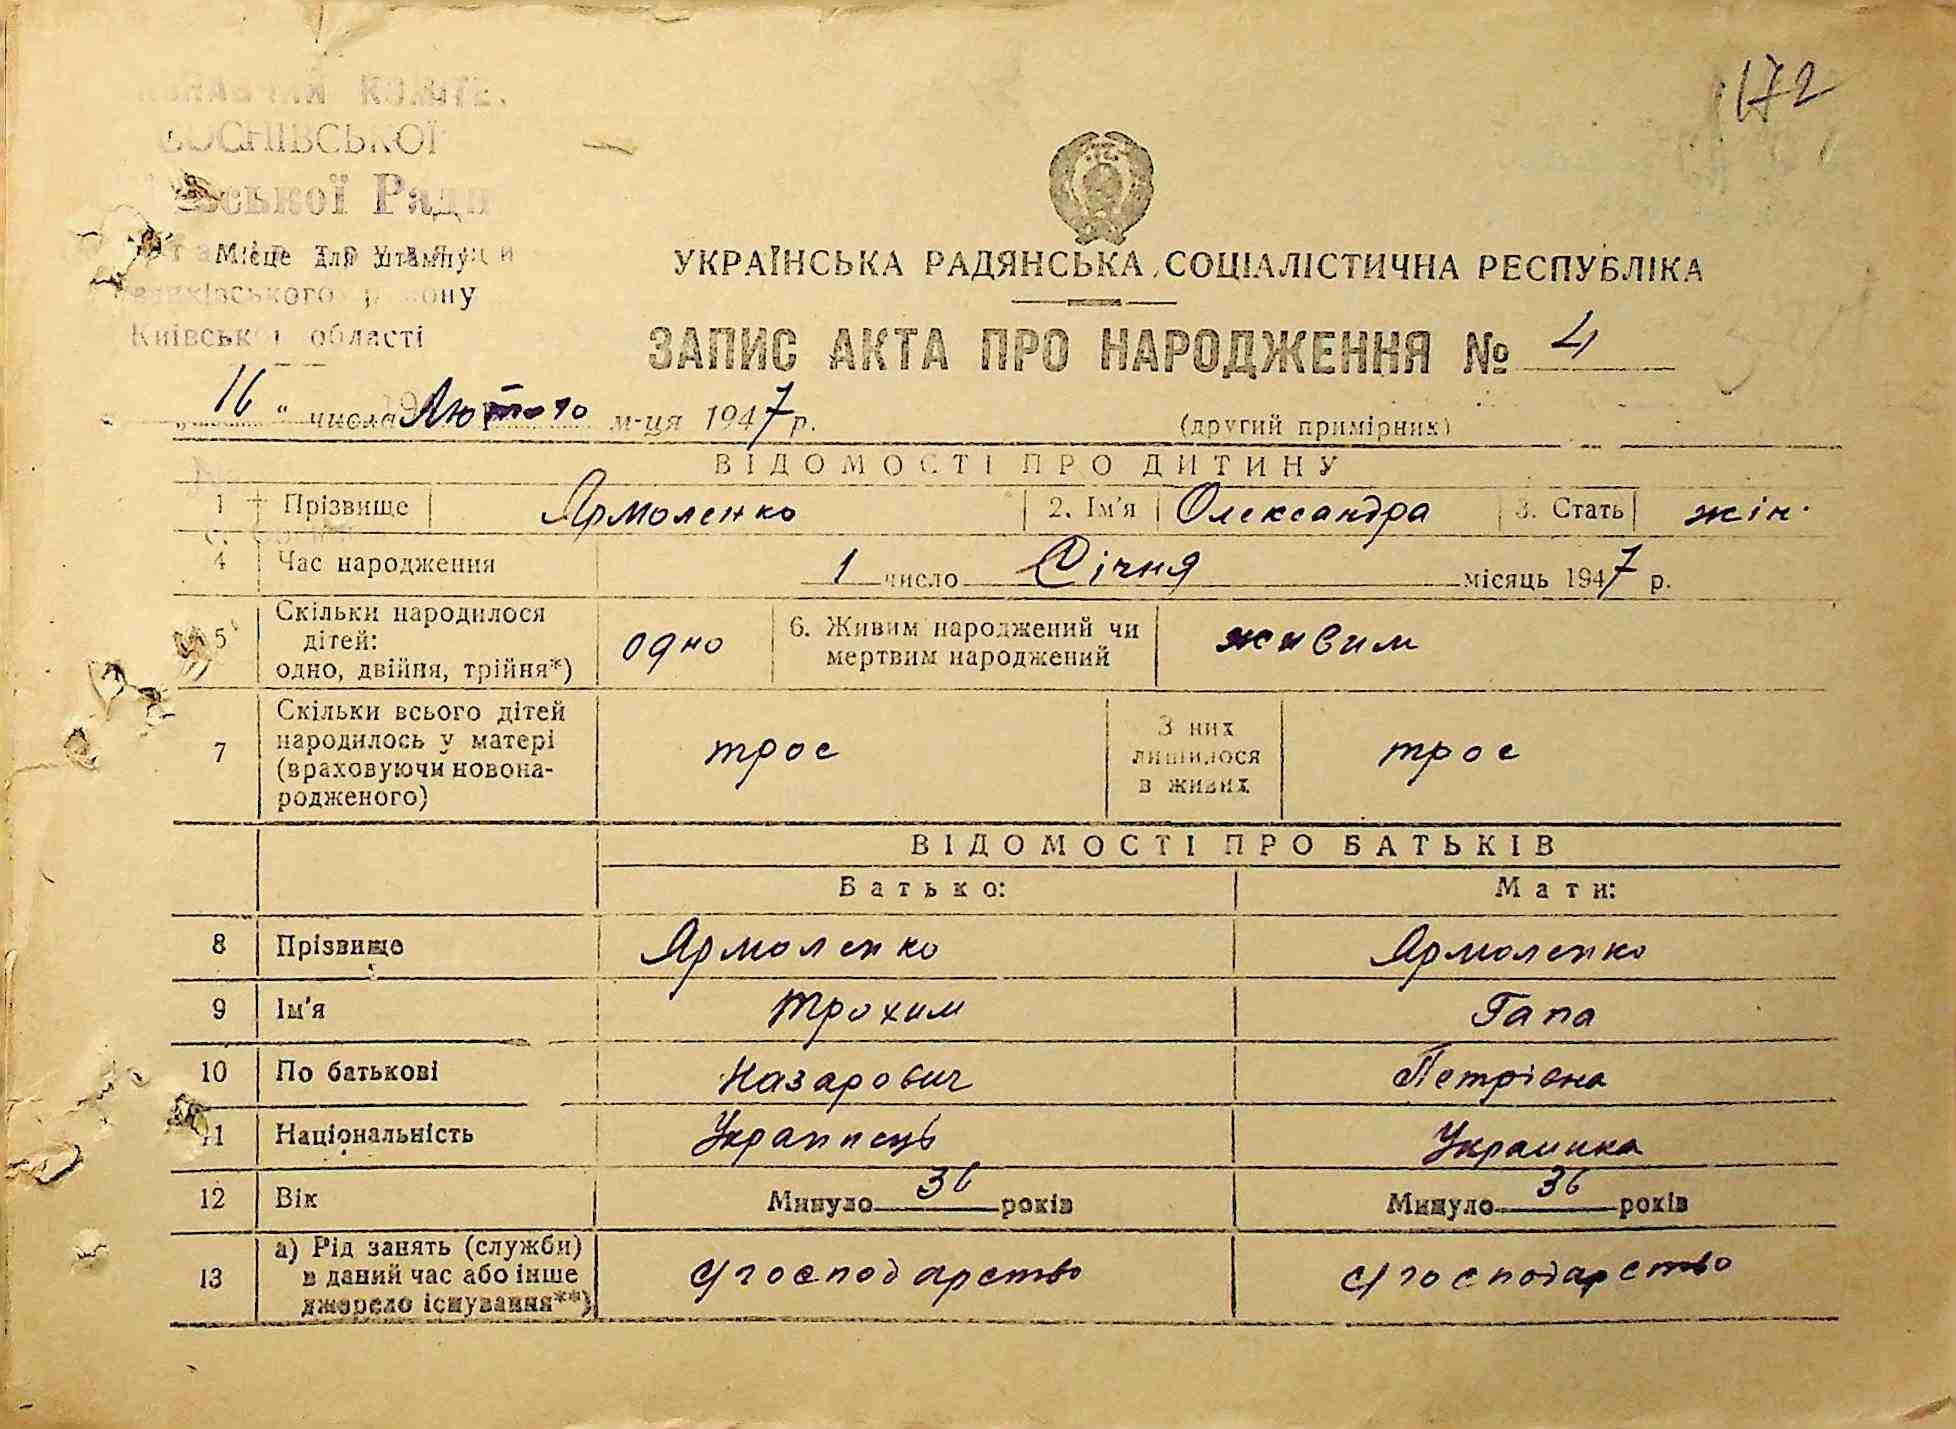 172
Київської області
Місце для штампу
УКРАЇНСЬКА РАДЯНСЬКА СОЦІАЛІСТИЧНА РЕСПУБЛІКА
ЗАПИС АКТА ПРО НАРОДЖЕННЯ № 4
16 " числа Лютого м-ця 1947 р. (другий примірник)
ВІДОМОСТІ ПРО ДИТИНУ
1 Прізвище Ярмоленко 2. Ім'я Олександра 3. Стать жін.
4 Час народження 1 число Січня місяць 1947 р.
5 Скільки народилося дітей: одно, двійня, трійня*) одно 6. Живим народжений чи мертвим народжений живим
7 Скільки всього дітей народилось у матері (враховуючи новонародженого) троє З них лишилося в живих троє
ВІДОМОСТІ ПРО БАТЬКІВ
Батько: Мати:
8 Прізвище Ярмоленко Ярмоленко
9 Ім'я Трохим Гапа
10 По батькові Назарович Петрівна
11 Національність Украинець Украинка
12 Вік Минуло 36 років Минуло 36 років
13 а) Рід занять (служби) в даний час або інше джерело існування**) с/господарство с/господарство